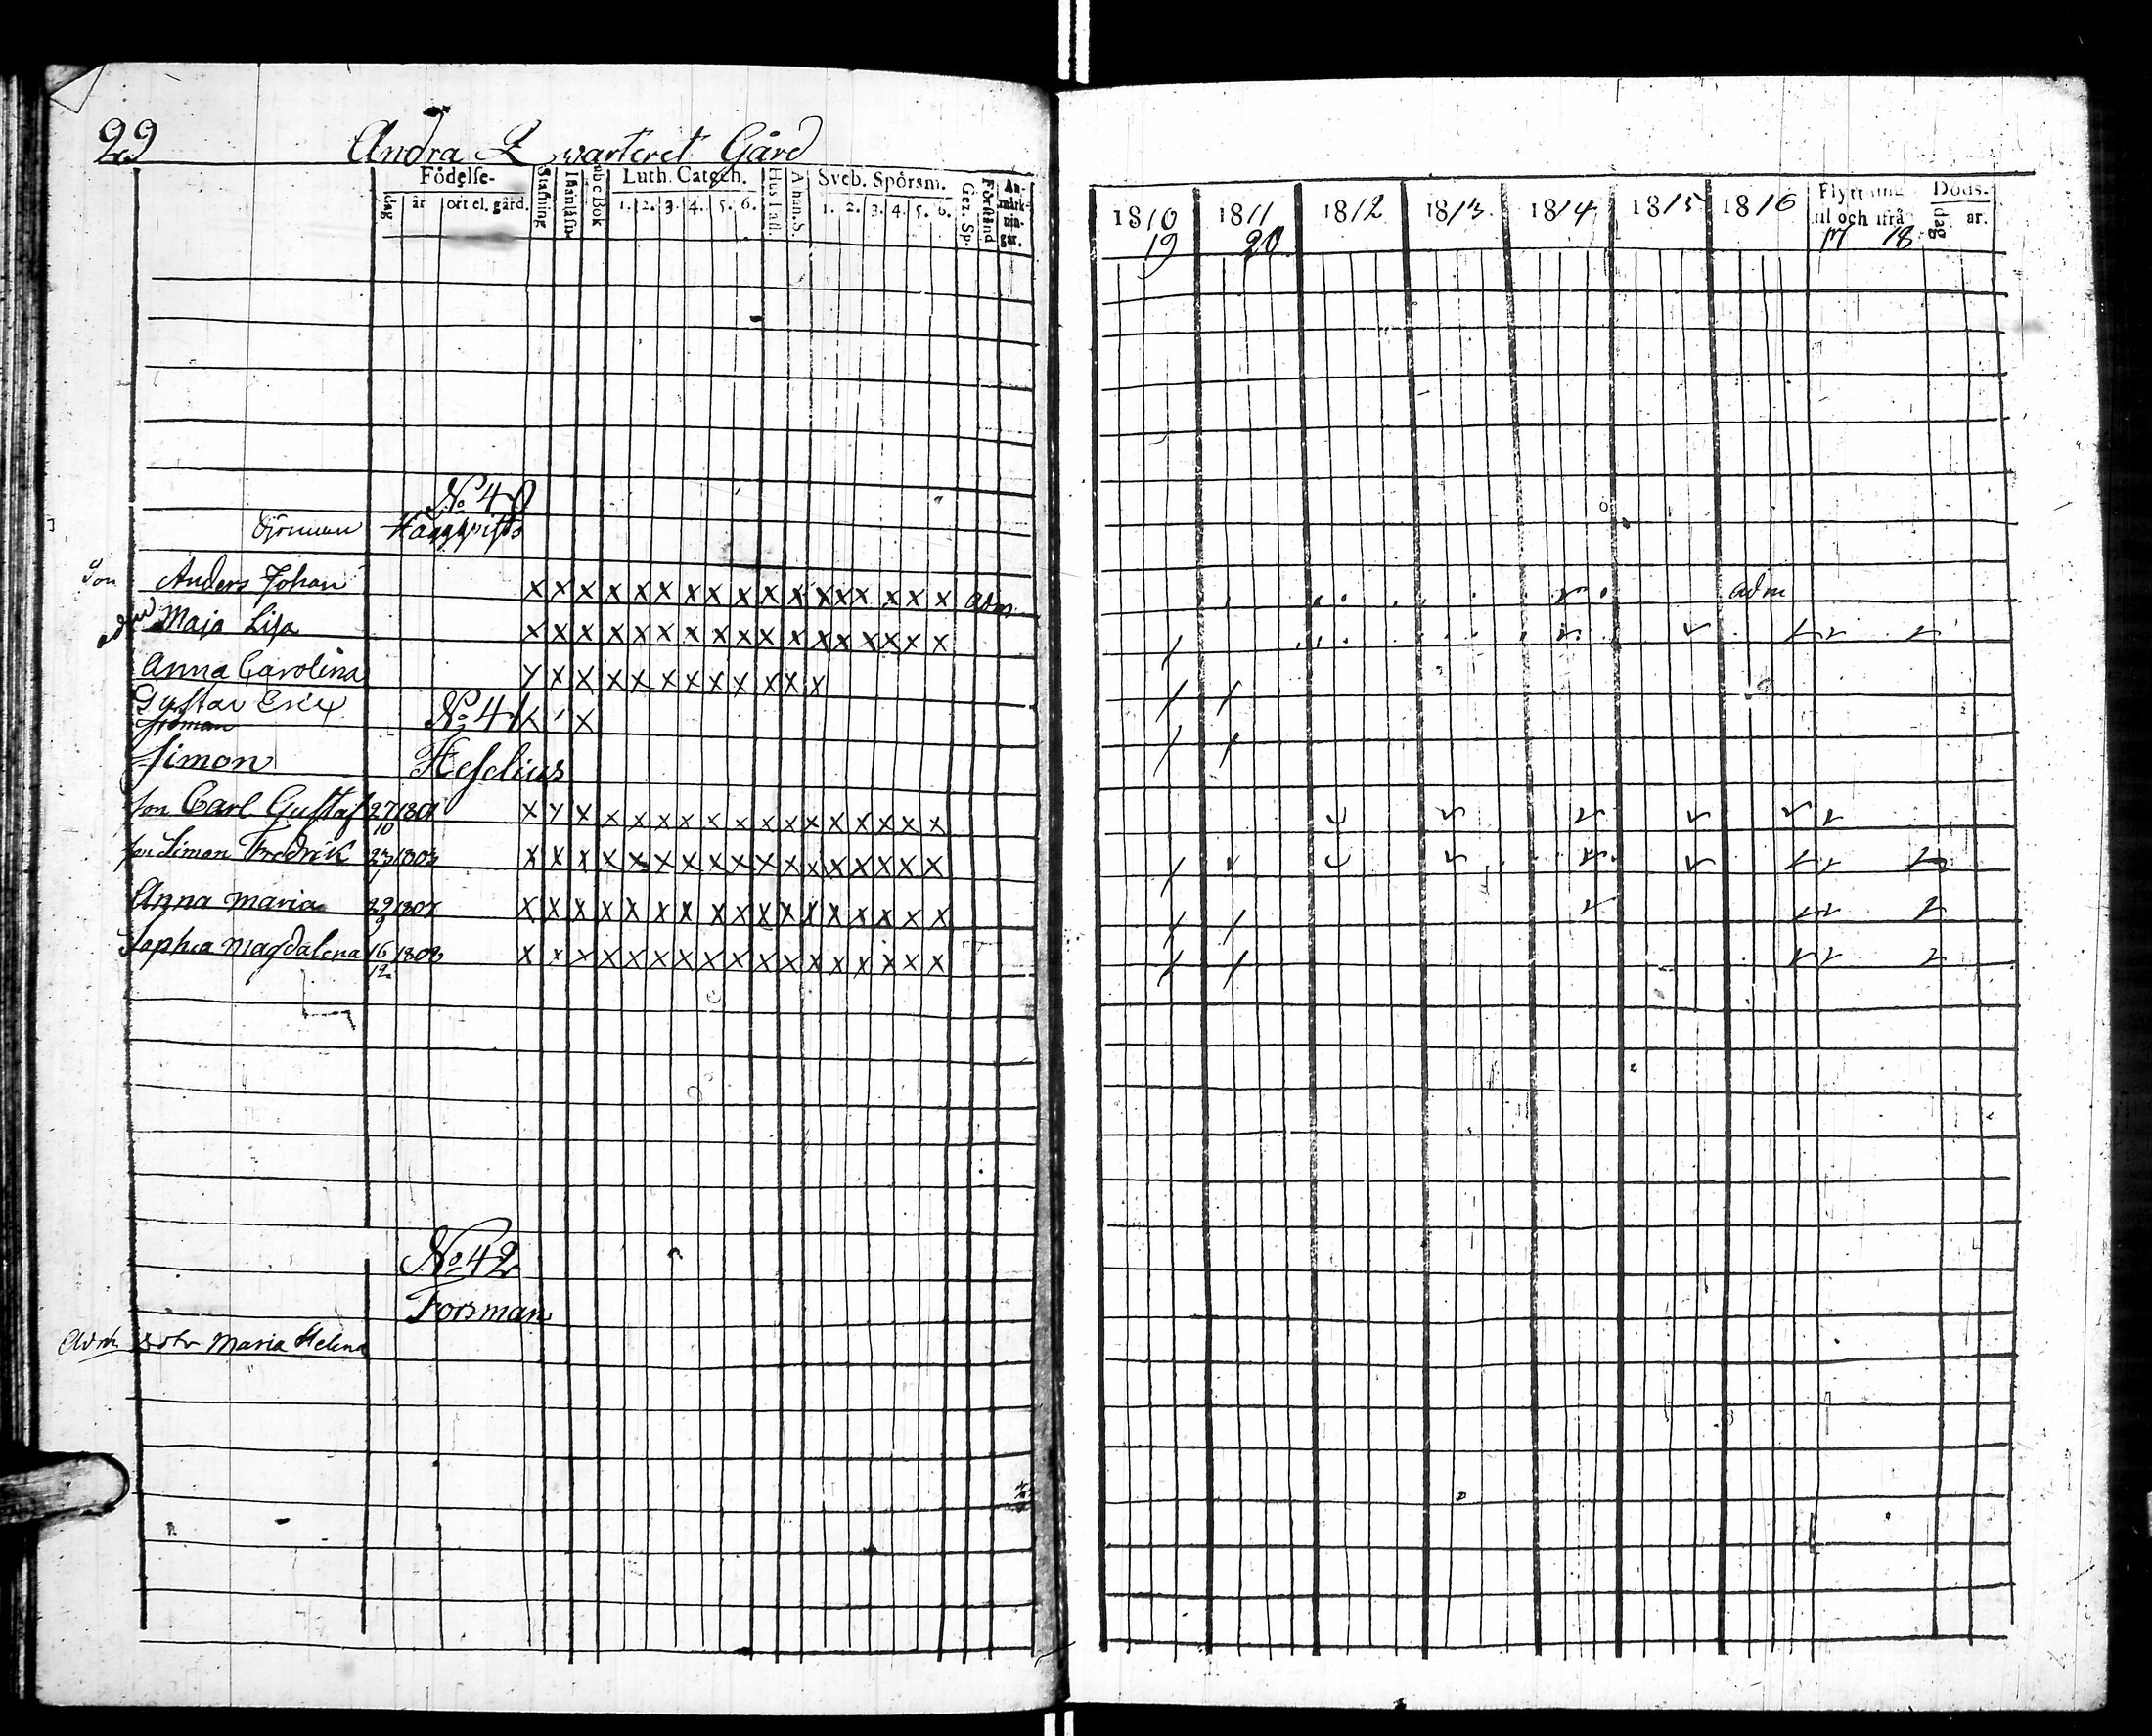 29 Andra Qvarteret Gård
Födelse- Stafning Luth. Catech. Sveb. Spörsm. Gez. Sp. Förstånd An-märk-nin-gar.
dag år ort el. gård. Bok 1. 2. 3. 4. 5. 6. 1. 2. 3. 4. 5. 6.
1810 1811 1812 1813 1814 1815 1816 Flyttning Döds-
19 20 til och ifrå 17 18 dag år.
No 40
Son Anders Johan x x x x x x x x x x x x x x x x x adm adm
Maja Lisa x x x x x x x x x x x x x x x x x
Anna Carolina x x x x x x x x x x x x
Gustav Eric x x
No 41
Simon Heselius
son Carl Gustaf 27/10 1801 x x x x x x x x x x x x x x x x x
son Simon Fredrik 23/1 1803 x x x x x x x x x x x x x x x x x
Anna Maria 29/9 1807 x x x x x x x x x x x x x x x x x
Sophia Magdalena 16/12 1808 x x x x x x x x x x x x x x x x x
No 42
Forsman
dotr Maria Helena